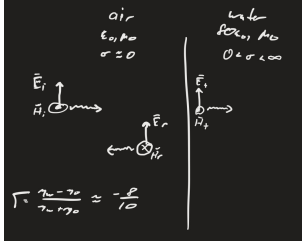 air
ε₀, μ₀
σ ≈ 0
water
80ε₀, μ₀
0 < σ < ∞
Ēᵢ
H̄ᵢ
Ēᵣ
H̄ᵣ
Ēₜ
H̄ₜ
Γ = (ηw − η₀)/(ηw + η₀) ≈ −8/10